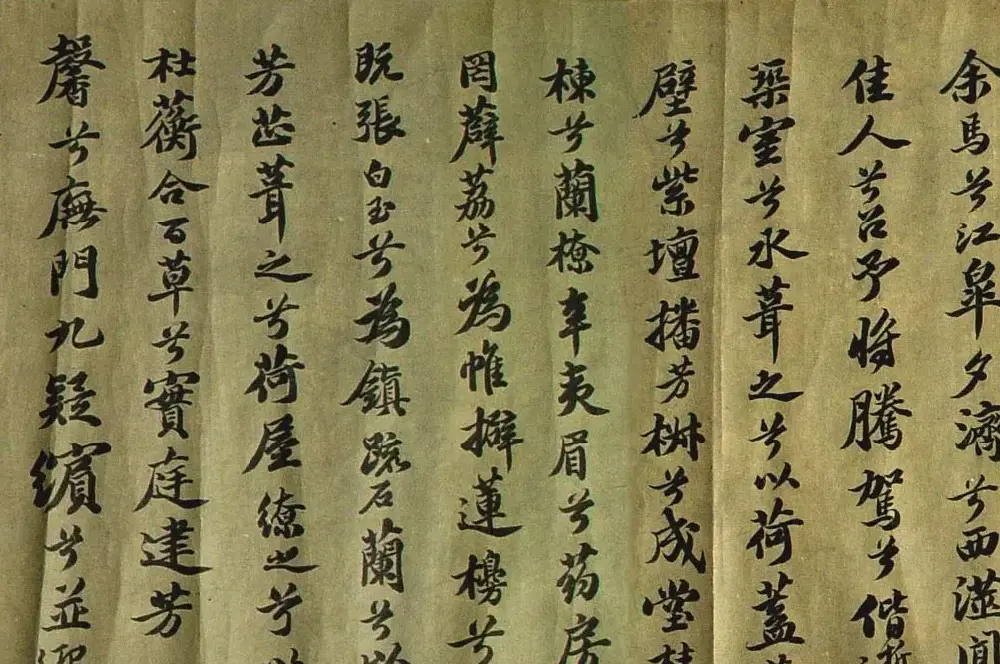 余馬兮江皋夕濟兮西澨聞
佳人兮召予將騰駕兮偕逝
築室兮水葺之兮以荷蓋
壁兮紫壇播芳椒兮成堂桂
棟兮蘭橑辛夷眉兮葯房
罔薜荔兮為帷擗蓮櫋兮
既張白玉兮為鎮疏石蘭兮
芳芷葺之兮荷屋繚之兮
杜蘅合百草兮實庭建芳
馨兮廡門九疑繽兮並迎